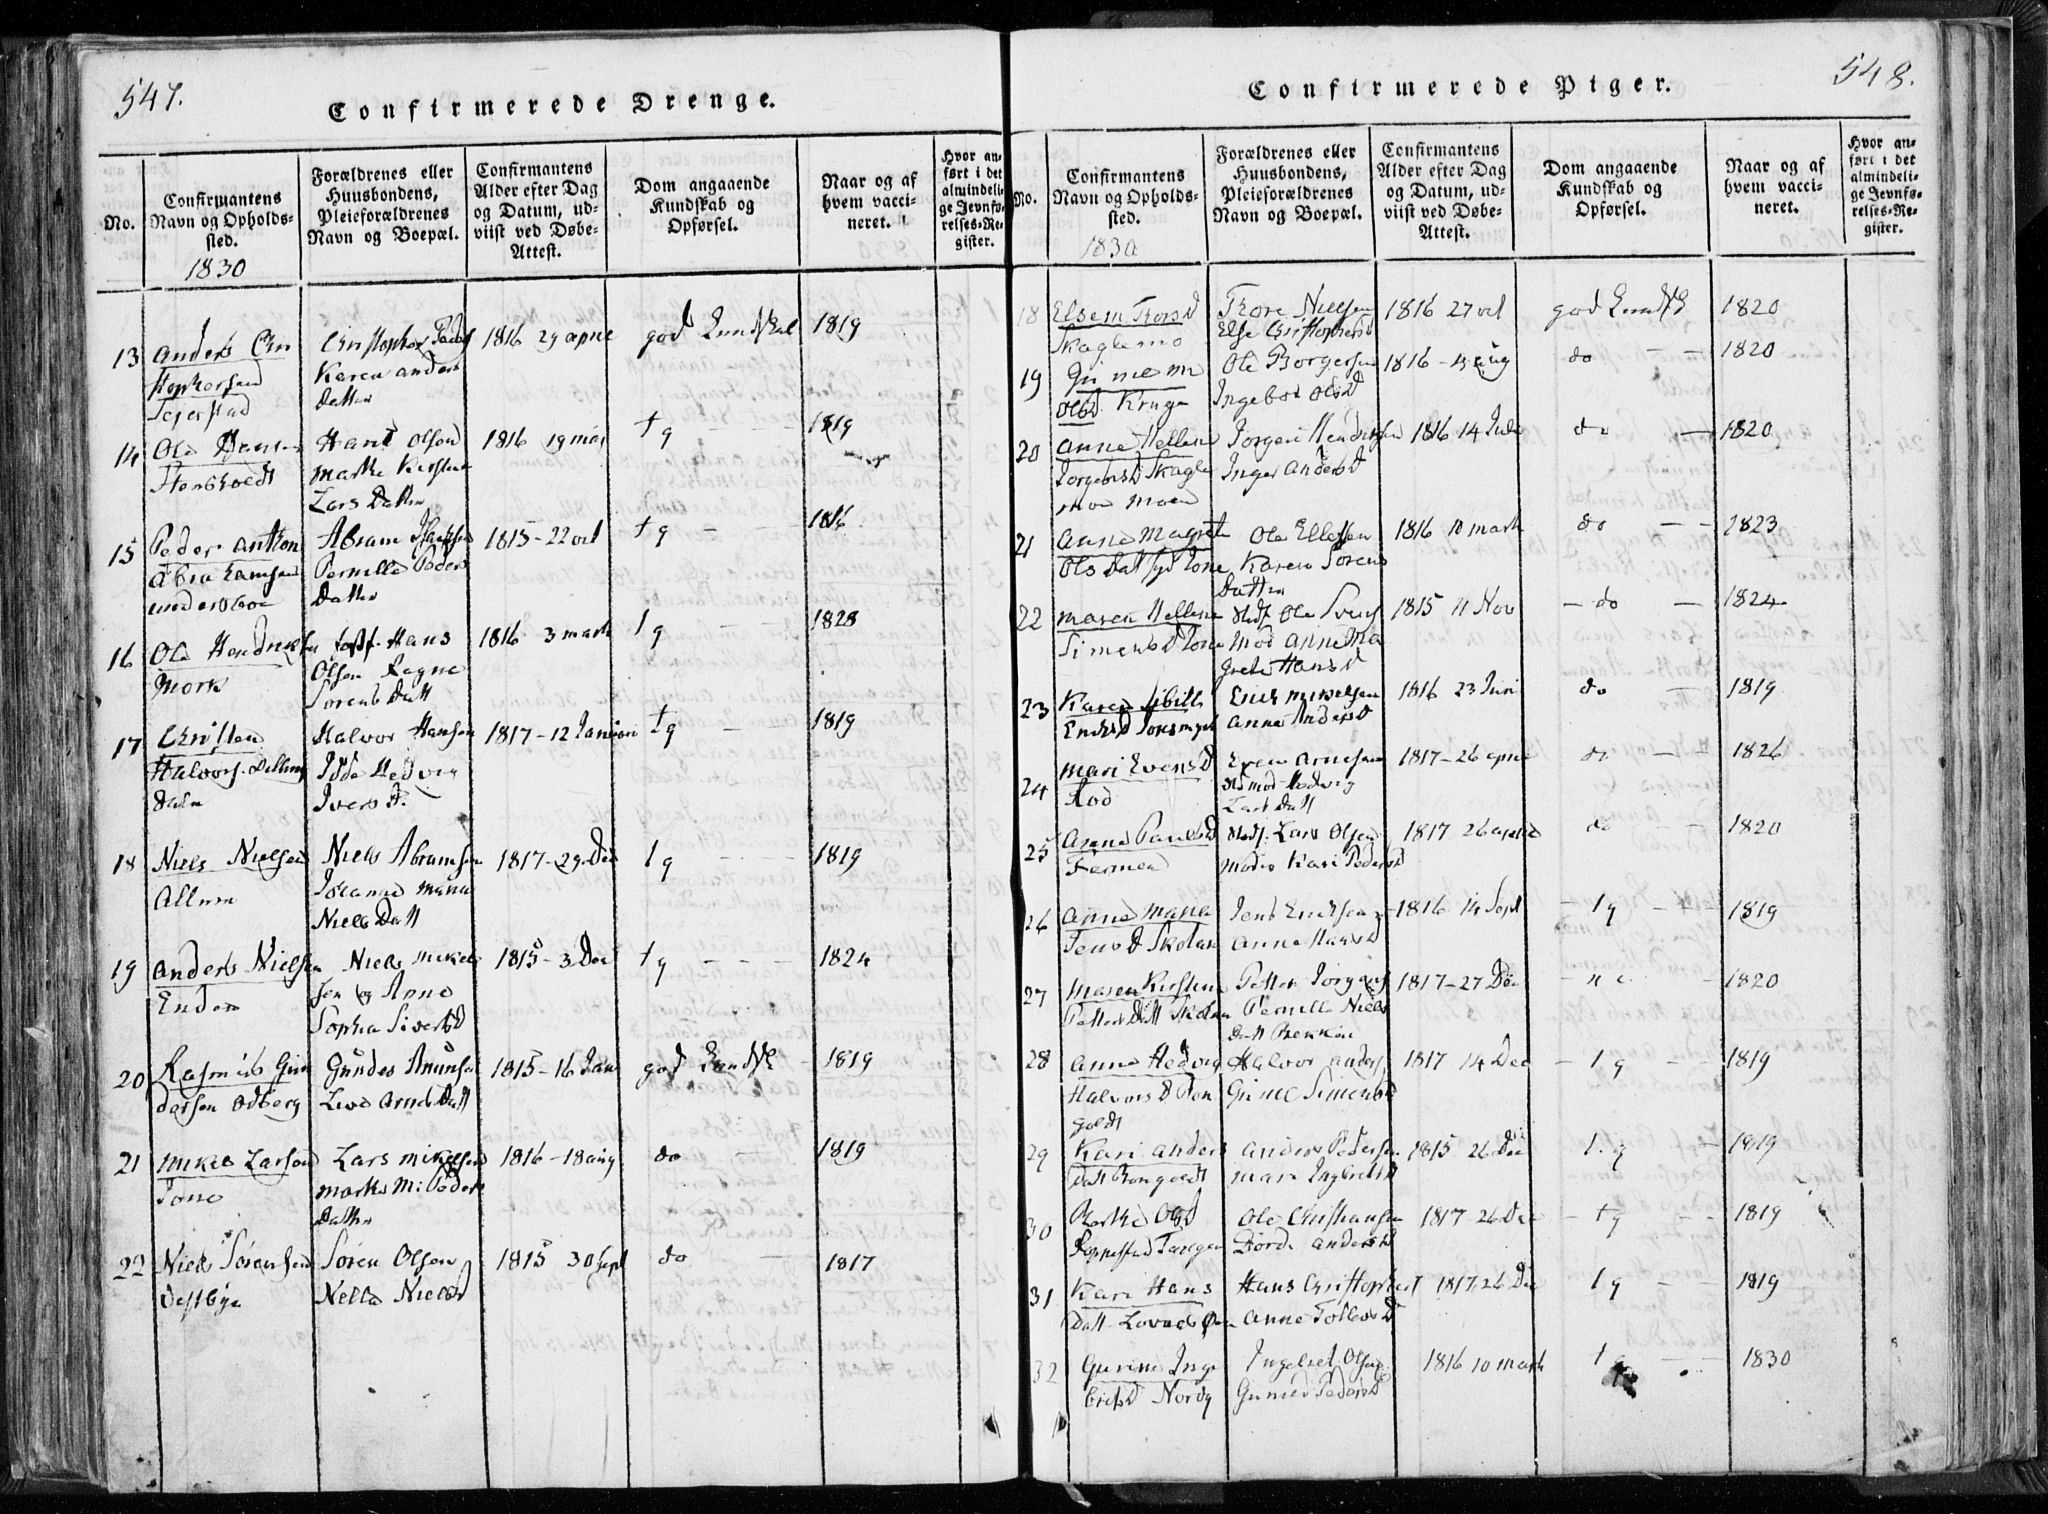 547.
Confirmerede Drenge.
No.
Confirmantens
Navn og Opholds-
sted.
1830
Forældrenes eller
Huusbondens,
Pleieforældrenes
Navn og Boepæl.
Confirmantens
Alder efter Dag
og Datum, ud-
viist ved Døbe-
Attest.
Dom angaaende
Kundskab og
Opførsel.
Naar og af
hvem vacci-
neret.
Hvor an-
ført i det
almindeli-
ge Jevnfø-
relses-Re-
gister.
13
Anders Chri
stophersen
Christopher
Karen Anders
Datter
1816 29 april
god Kundskab
1819
14
Ole Hansen
Hans Olsen
Marthe Kirstine
Lars Datter
1816 19 mai
tg
1819
15
Peder Anthon
Abrahamsen
Abram
Pernille Peders
Datter
1815 - 22 oct
tg
1816
16
Ole Hendriksen
Mork
Hans
Olsen Ragne
Sorens Datt
1816 3 mart
tg
1828
17
Christen
Halvors. Delling
Dalen
Halvor Hansen
Hedvig
Ivers D.
1817 - 12 Januari
tg
1819
18
Niels Nielsen
Allum
Niels Abramsen
Johanne Maria
Niels Datt
1817 - 29 Dec
tg
1819
19
Anders Nielsen
Enden
Niels Mikel
sen og Anne
Sophia SivertsD
1815 - 3 Dec
tg
1824
20
Rasmus Gun
dersen Odberg
Gunder Amunsen
Live Arnes Datt
1815 - 16 Jan
god Kundsk
1819
21
Mikel Larsen
Jone
Lars Mikelsen
Marthe M. Peders
Datter
1816 - 18 aug
do
1819
22
Niels Sörensen
Vestbye
Sören Olsen
Nella NielsD
1815 30 Sept
do
1817
548.
Confirmerede Piger.
No.
Confirmantens
Navn og Opholds-
sted.
1830
Forældrenes eller
Huusbondens,
Pleieforældrenes
Navn og Boepæl.
Confirmantens
Alder efter Dag
og Datum, ud-
viist ved Døbe-
Attest.
Dom angaaende
Kundskab og
Opførsel.
Naar og af
hvem vacci-
neret.
Hvor an-
ført i det
almindeli-
ge Jevnfø-
relses-Re-
gister.
18
Elsem ThorsD
Skaglemo
Thore Nielsen
Else ChristophersD
1816 27 oct
god Kundsk
1820
19
OlsD
Ole Borgersen
Ingebor OlsD
1816 - 13 aug
do
1820
20
Anne Hellene
JorgensD Skagle
moe Moen
Jorgen Hendriksen
Inger AndersD
1816 14 Juli
do
1820
21
Anne Magret
Ols Datt
Ole Ellefsen
Karen Sorens
Datter
1816 10 mart
do
1823
22
Maren Hellene
SimensD Jone
Stedf. Ole
Mod Anne Ma
grete HansD
1815 11 Nov
do
1824
23
Karen Sibille
Erich Mikelsen
Anne AndersD
1816 23 Juni
do
1819
24
Mari EvensD
Rod
Even Arnesen
Hedvig
Lars Datt
1817 - 26 april
do
1826
25
Anne PaulsD
Farmen
Stedf. Lars Olsen
Moder Kari PedersD
1817 26 april
do
1820
26
Anne Maria
JensD Skolan
Jens Erichsen
Anne HansD
1816 14 Sept
tg
1819
27
Maren Kirstine
Petters Datt Skolan
Petter Jorgens
Pernille Niels
Datt Bekken
1817 - 27 Dec
1820
28
Anne Hedvig
HalvorsD Bon
goldt
Halvor Anders
Gunel SimensD
1817 14 Dec
tg
1819
29
Kari Anders
Datt Bongoldt
Anders Pedersen
Mari IngbretsD
1815 26 Dec
tg
1819
30
Marthe OlsD
Tangen
Ole Christiansen
Dorde AndersD
1817 26 Dec
tg
1819
31
Kari Hans
Datt
Hans Christophers
Anne TollesD
1817, 26 Dec
tg
1819
32
Gurine Inge
bretsD Nordy
Ingebret Olsen
Guneld PedersD
1816 10 mart
tg
1830